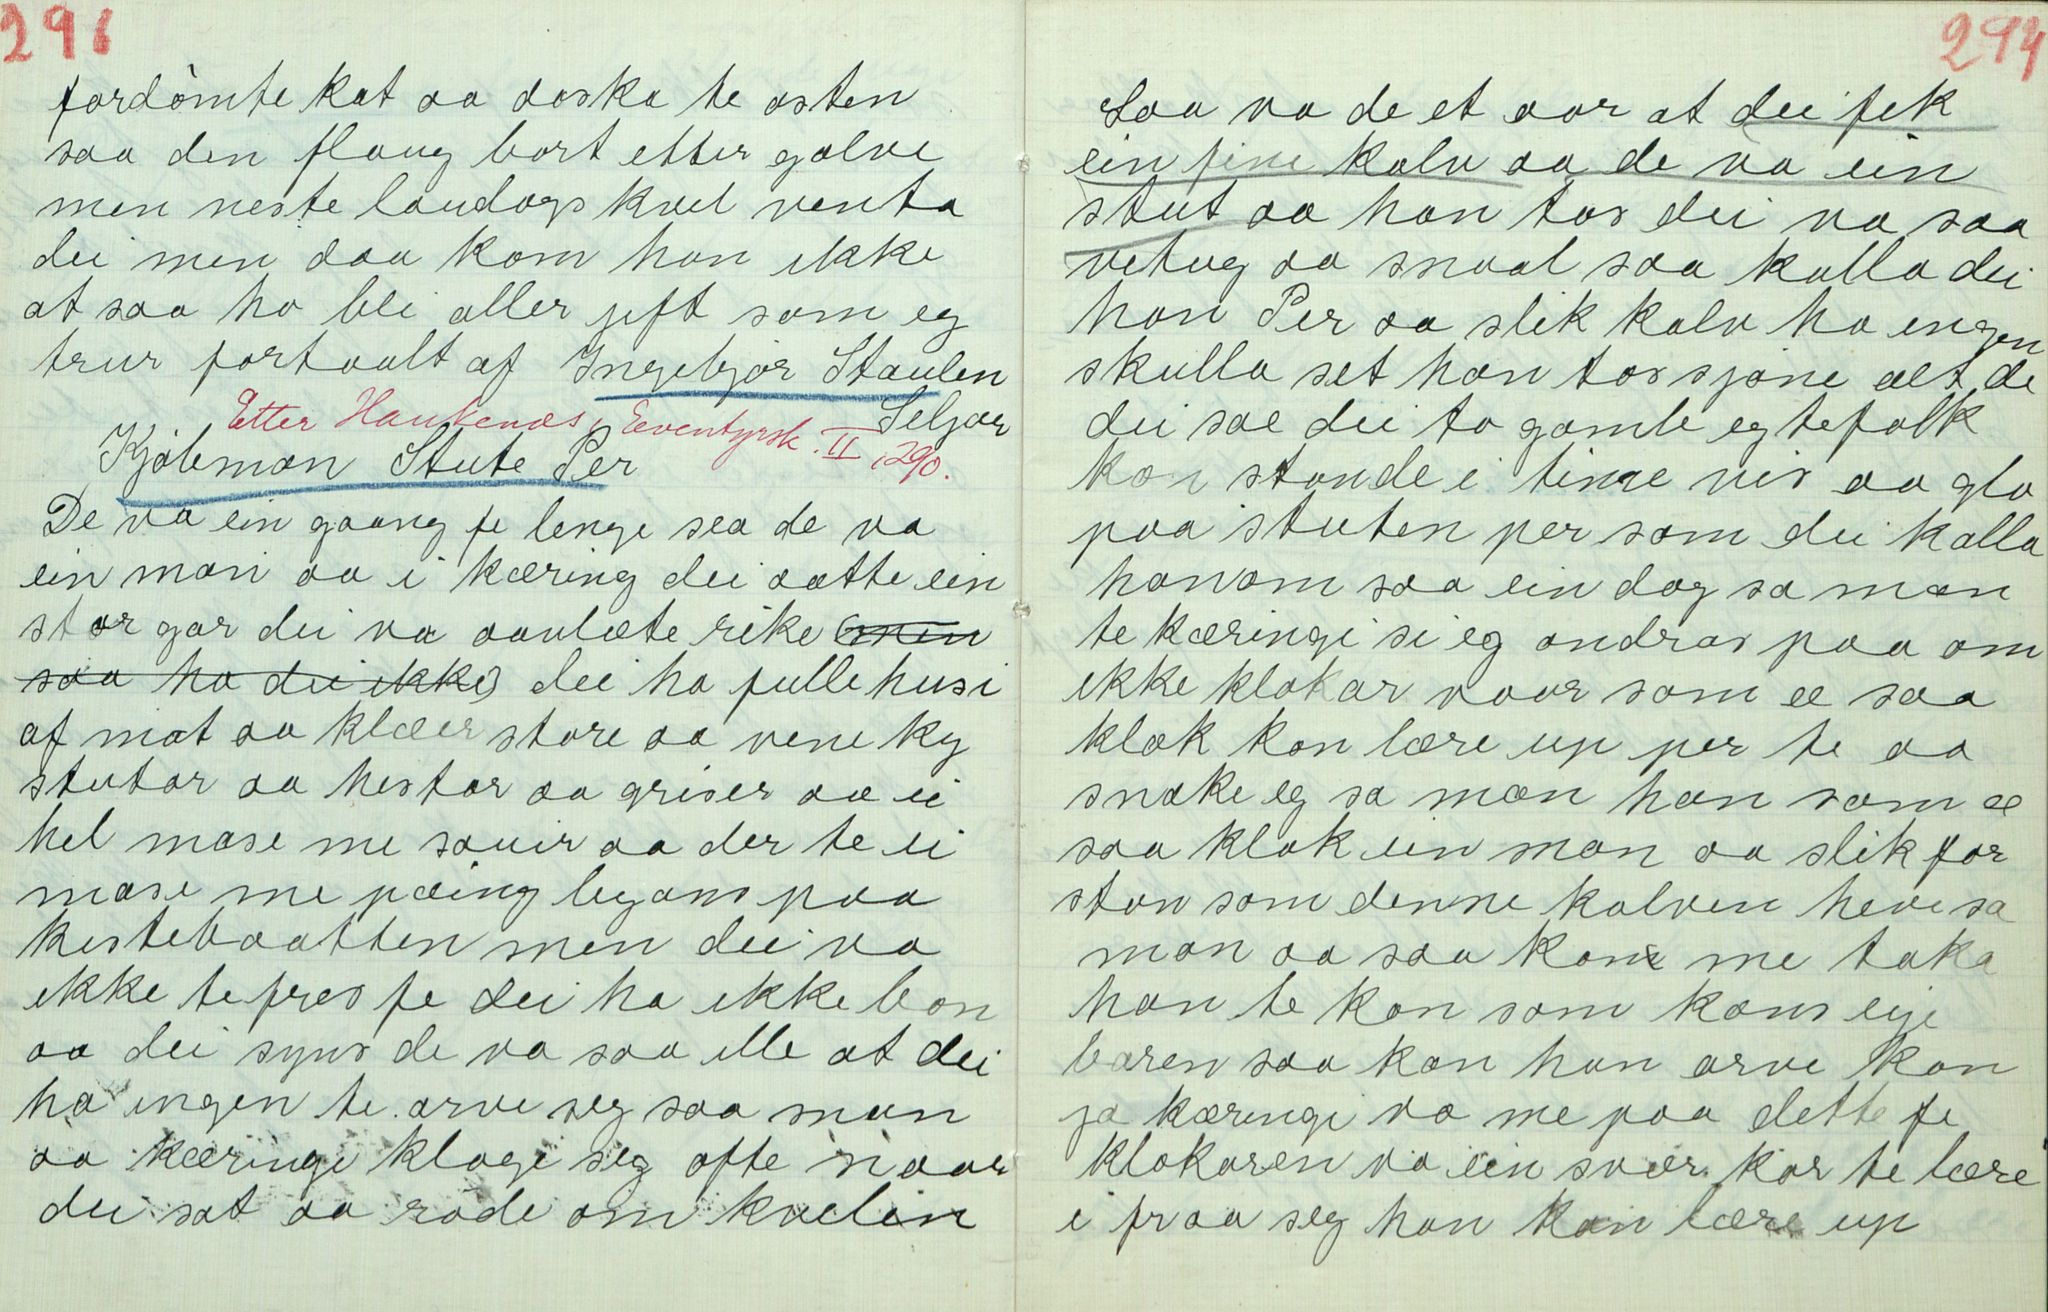 296
fordömte kat aa daska te asten
saa den flaug bort etter golve
men neste laudags kvel venta
dei men daa kom han ikke
at saa ho blei aller jift som eg
trur fortaalt af Ingebjør Staulen
Seljor
Etter Haukenæs, Eeventyrsk. II, 290.
Kjöbman Stute Per
De va ein gaang fe lenge sea de va
ein man aa i kæring dei aatte ein
stor gar dei va aavlæte rike (men
saa ha dei ikke) dei ha fulle husi
af mat aa klæer store aa vene ky
stutar aa hestar aa griser aa ei
hel mase me souir aa der te ei
mase me pæing legans paa
kistebaatten men dei va
ikke tefres fe dei ha ikke bon
aa dei syns de va saa ille at dei
ha ingen te arve seg saa man
aa kæringe klage seg ofte naar
dei sat aa rade om kvelin
297
Saa va de et aar at dei fik
ein fine kalv aa de va ein
stut aa han tos dei va saa
vetug aa snaal saa kalla dei
han Per aa slik kalv ha engen
skulla set han tos sjøne alt de
dei sae dei to gamle egtefolk
kon stande i time vis aa glo
paa stuten per som dei kalla
hanom saa ein dag sa man
te kæringi si eg ondras paa om
ikke klokar vaar som æ saa
klok kan lære up per te aa
snake eg sa man han som æ
saa klok ein man aa slik for
stan som denne kalven heve sa
man aa saa kan me taka
han te kon som kans eije
baren saa kan han arve kan
ja kæringi va me paa dette fe
klokaren va ein svær kar te lære
i fraa seg han kan lære up